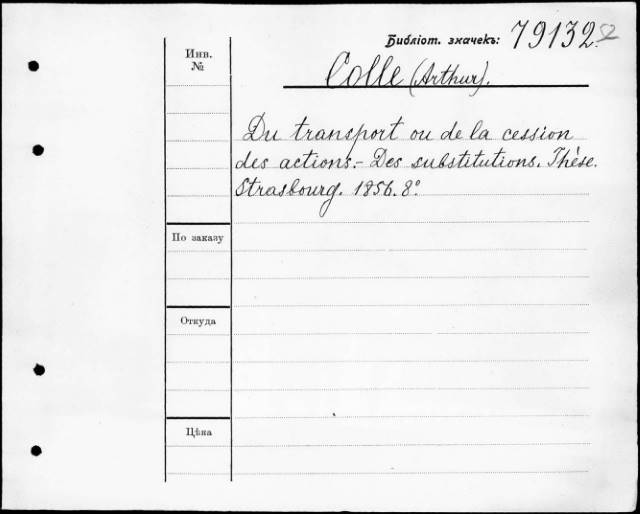 Библіот. значекъ: 79132
Инв. №
Colle (Arthur).
Du transport ou de la cession
des actions.- Des substitutions. Thèse.
Strasbourg. 1856. 8°
По заказу
Откуда
Цѣна